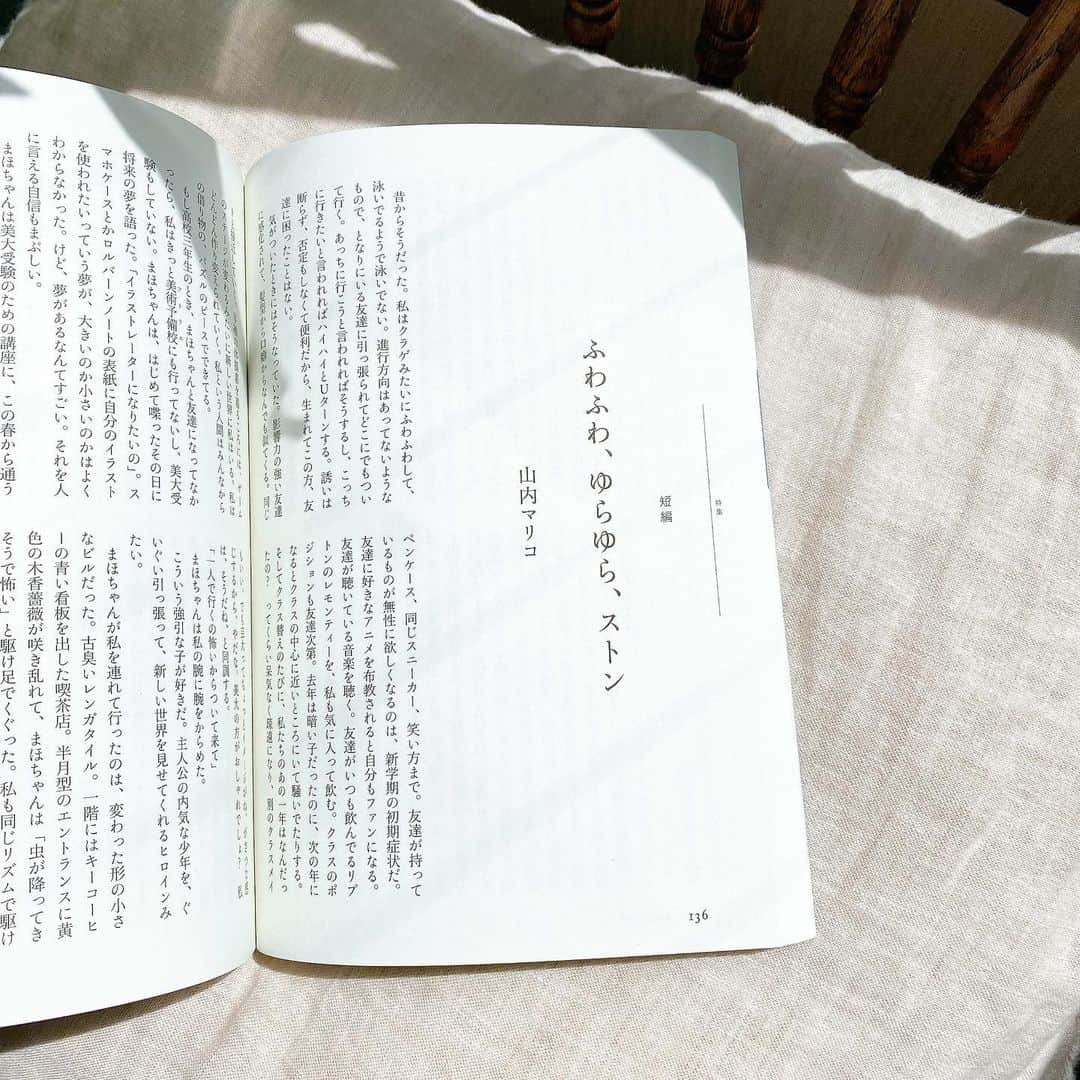 特集
短編
ふわふわ、ゆらゆら、ストン
山内マリコ
昔からそうだった。私はクラゲみたいにふわふわして、
泳いでるようで泳いでない。進行方向はあってないような
もので、となりにいる友達に引っ張られてどこにでもつい
て行く。あっちに行こうと言われればそうするし、こっち
に行きたいと言われればハイハイとUターンする。誘いは
断らず、否定もしなくて便利だから、生まれてこの方、友
達に困ったことはない。
気がついたときにはそうなっていた。影響力の強い友達
に感化されて、髪型から口癖からなんでも似てくる。同じ
ペンケース、同じスニーカー、笑い方まで。友達が持って
いるものが無性に欲しくなるのは、新学期の初期症状だ。
友達に好きなアニメを布教されると自分もファンになる。
友達が聴いている音楽を聴く。友達がいつも飲んでるリプ
トンのレモンティーを、私も気に入って飲む。クラスのポ
ジションも友達次第。去年は暗い子だったのに、次の年に
なるとクラスの中心に近いところにいて騒いでたりする。
そしてクラス替えのたびに、私たちのあの一年はなんだっ
たの？ってくらい呆気なく疎遠になり、別のクラスメイ
136
に新しい世界に私はいる。私は
どんどん作り変えられていく。私という人間はみんなから
の借り物の、パズルのピースでできてる。
もし高校三年生のとき、まほちゃんと友達になってなか
ったら、私はきっと美術予備校にも行ってないし、美大受
験もしていない。まほちゃんは、はじめて喋ったその日に
将来の夢を語った。「イラストレーターになりたいの」。ス
マホケースとかロルバーンノートの表紙に自分のイラスト
を使われたいっていう夢が、大きいのか小さいのかはよく
わからなかった。けど、夢があるなんてすごい。それを人
に言える自信もまぶしい。
まほちゃんは美大受験のための講座に、この春から通う
じするから、やだな。美大の方がおしゃれでしょ？ 私
は、そうだね、と同調する。
「一人で行くの怖いからついて来て」
まほちゃんは私の腕に腕をからめた。
こういう強引な子が好きだ。主人公の内気な少年を、ぐ
いぐい引っ張って、新しい世界を見せてくれるヒロインみ
たい。
まほちゃんが私を連れて行ったのは、変わった形の小さ
なビルだった。古臭いレンガタイル。一階にはキーコーヒ
ーの青い看板を出した喫茶店。半月型のエントランスに黄
色の木香薔薇が咲き乱れて、まほちゃんは「虫が降ってき
そうで怖い」と駆け足でくぐった。私も同じリズムで駆け